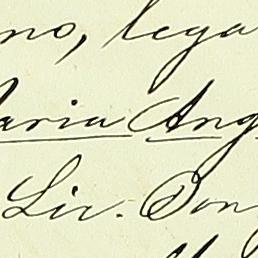 no, lega
aria Ang
Lic. Don